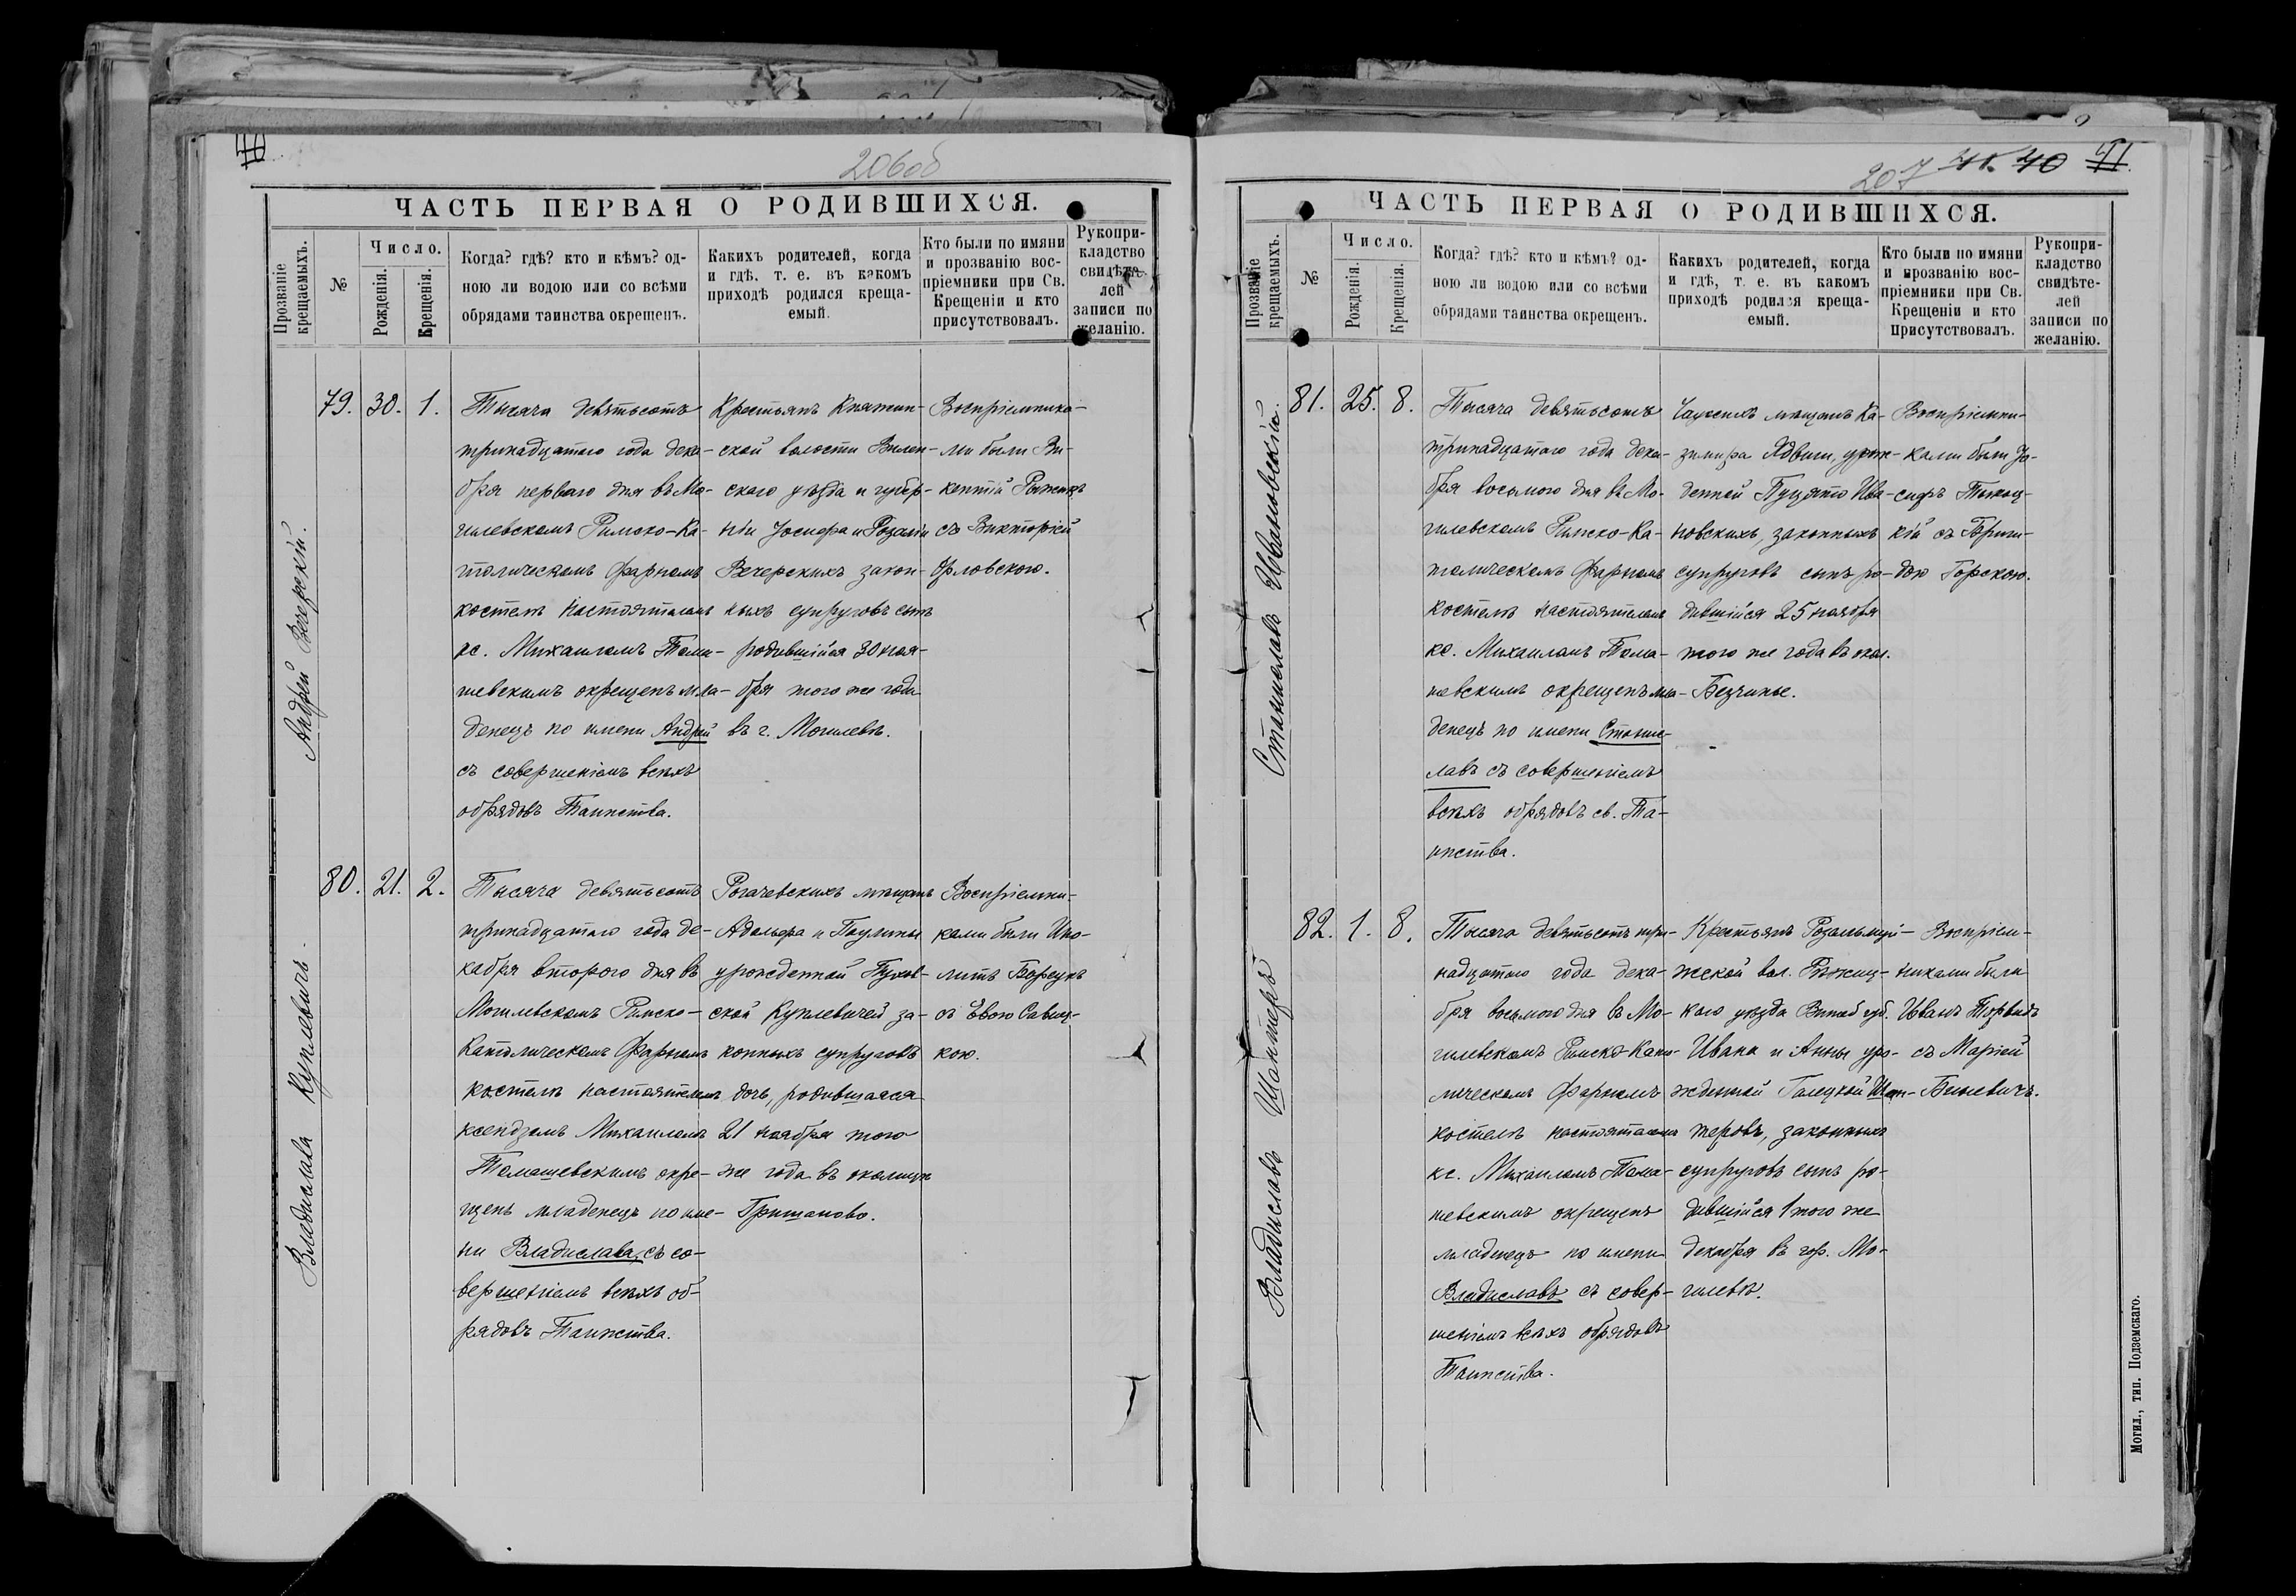 206об
ЧАСТЬ ПЕРВАЯ О РОДИВШИХСЯ.
Прозваніе крещаемыхъ.
№
Число.
Рожденія.
Крещенія.
Когда? гдѣ? кто и кѣмъ? од-
ною ли водою или со всѣми
обрядами таинства окрещенъ.
Какихъ родителей, когда
и гдѣ, т. е. въ какомъ
приходѣ родился креща-
емый.
Кто были по имяни
и прозванію вос-
пріемники при Св.
Крещеніи и кто
присутствовалъ.
Рукопри-
кладство
свидѣте-
лей
записи по
желанію.
Андрей Вечерскій.
79. 30. 1.
Тысяча девятьсотъ
тринадцатаго года дека-
бря перваго дня въ Мо-
гилевскомъ Римско-Ка-
толическомъ фарномъ
костелѣ настоятелемъ
кс. Михаиломъ Тома-
шевскимъ окрещенъ мла-
денецъ по имени Андрей
съ совершеніемъ всѣхъ
обрядовъ Таинства.
Крестьянъ Княжин-
ской волости Вилен-
скаго уѣзда и губер-
ніи Іосифа и Розаліи
Вечерскихъ закон-
ныхъ супруговъ сынъ
родившійся 30 ноя-
бря того же года
въ г. Могилевѣ.
Воспріемника-
ми были Ви-
кентій
съ Викторіей
Орловскою.
Владислава Куплевичъ.
80. 21. 2.
Тысяча девятьсотъ
тринадцатаго года де-
кабря второго дня въ
Могилевскомъ Римско-
Католическомъ Фарномъ
костелѣ настоятелемъ
ксендзомъ Михаиломъ
Томашевскимъ окре-
щенъ младенецъ по име-
ни Владислава, съ со-
вершеніемъ всѣхъ об-
рядовъ Таинства.
Рогачевскихъ мѣщанъ
Адольфа и Паулины
урожденной Пухов-
ской Куплевичей за-
конныхъ супруговъ
дочь, родившаяся
21 ноября того
же года въ околицѣ
Гришаново.
Воспріемни-
ками были Ипо-
литъ
съ Евою Савиц-
кою.
207 40
ЧАСТЬ ПЕРВАЯ О РОДИВШИХСЯ.
Прозваніе крещаемыхъ.
№
Число.
Рожденія.
Крещенія.
Когда? гдѣ? кто и кѣмъ? од-
ною ли водою или со всѣми
обрядами таинства окрещенъ.
Какихъ родителей, когда
и гдѣ, т. е. въ какомъ
приходѣ родился креща-
емый.
Кто были по имяни
и прозванію вос-
пріемники при Св.
Крещеніи и кто
присутствовалъ.
Рукопри-
кладство
свидѣте-
лей
записи по
желанію.
Станиславъ Ивановскій.
81. 25. 8.
Тысяча девятьсотъ
тринадцатаго года дека-
бря восьмого дня въ Мо-
гилевскомъ Римско-Ка-
толическомъ Фарномъ
костелѣ настоятелемъ
кс. Михаиломъ Тома-
шевскимъ окрещенъ мла-
денецъ по имени Станис-
лавъ съ совершеніемъ
всѣхъ обрядовъ св. Та-
инства.
Чаусскихъ мѣщанъ Ка-
зимира Ядвиги, урож-
денной Пуцято Ива-
новскихъ, законныхъ
супруговъ сынъ ро-
дившійся 25 ноября
того же года въ окол.
Безчинье.
Воспріемни-
ками были Іо-
сифъ
кій съ Бриги-
дою Горскою.
Владиславъ Шонтеръ
82. 1. 8.
Тысяча девятьсотъ три-
надцатаго года дека-
бря восьмого дня въ Мо-
гилевскомъ Римско-Като-
лическомъ Фарномъ
костелѣ настоятелемъ
кс. Михаиломъ Тома-
шевскимъ окрещенъ
младенецъ по имени
Владиславъ съ совер-
шеніемъ всѣхъ обрядовъ
Таинства.
Крестьянъ
вол. Рѣжиц-
каго уѣзда Витеб губ.
Ивана и Анны уро-
жденной Галецкой Шон-
теровъ, законныхъ
супруговъ сынъ ро-
дившійся 1 того же
декабря въ гор. Мо-
гилевѣ.
Воспріем-
никами были
Иванъ
съ Маріей
Билевичъ.
Могил., тип. Подземскаго.